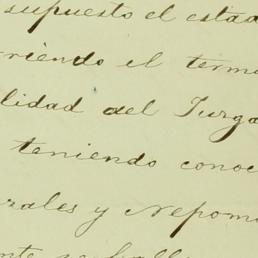 supuesto el estad
rriendo el termi
lidad del Juzga
teniendo conoc
rales y Nepom
nte se halla